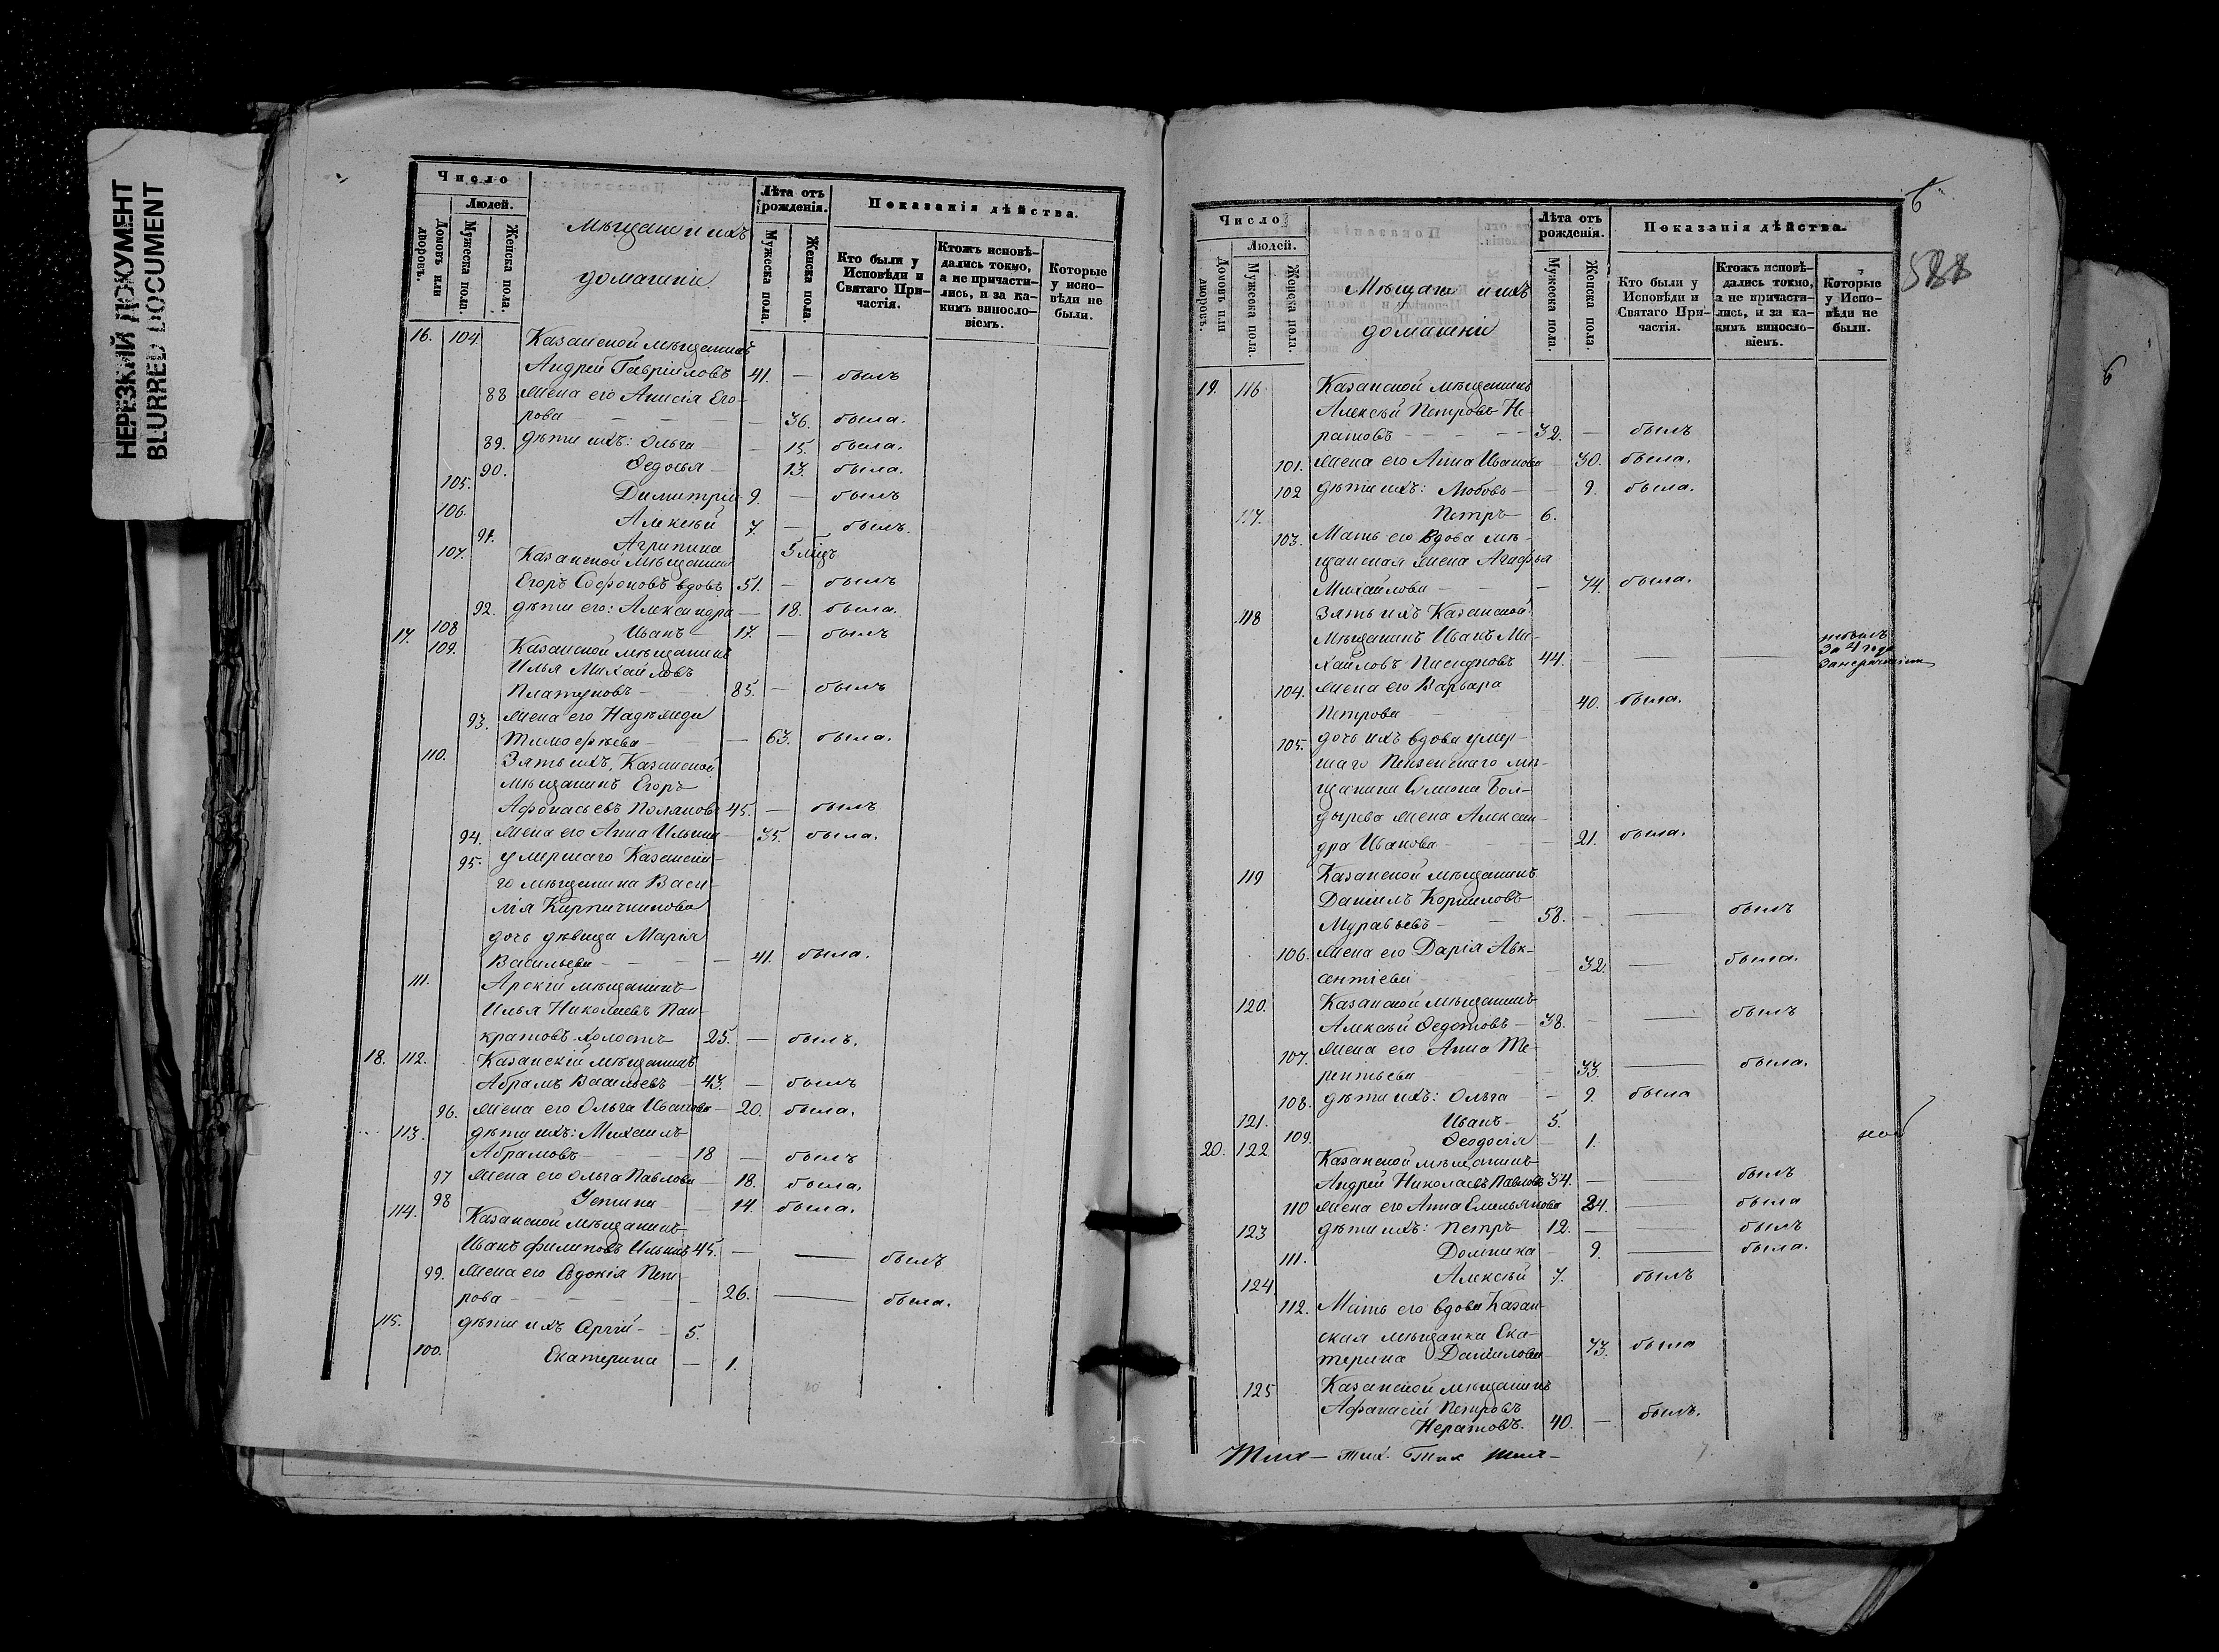 НЕРЕЗКИЙ ДОКУМЕНТ
BLURRED DOCUMENT
Число
Людей.
Домовъ или дворовъ.
Мужеска пола.
Женска пола.
Мѣщане и ихъ
домашніе.
Лѣта отъ рожденія.
Мужеска пола.
Женска пола.
Показанія дѣйства.
Кто были у Исповѣди и Святаго Причастія.
Ктожъ исповѣдались токмо, а не причастились, и за какимъ винословіемъ.
Которые у исповѣди не были.
16. 104. Казанской мѣщанинъ
Андрей Гавриловъ 41. — былъ
88 Жена его Анисія Его-
рова — — — 36. была.
89. дѣти ихъ: Ольга — — 15. была.
90. Ѳедосья — 13. была.
105. Димитрій 9. — былъ
106. Алексѣй 7. — былъ.
91. Агрипина 5 мѣц
107. Казанской мѣщанинъ
Егоръ Софоновъ вдовъ 51. — былъ
92. дѣти его: Александра — 18. была.
108 Иванъ — 17. — былъ
17. 109. Казанской мѣщанинъ
Илья Михайловъ
Платуновъ — 85. — былъ
93. Жена его Надежда
Тимофѣева — — 63. была.
110. Зять ихъ, Казанской
мѣщанинъ Егоръ
Афонасьевъ Поляновъ 45. — былъ
94. Жена его Анна Ильина — 35. была.
95. умершаго Казанска-
го мѣщанина Васи-
лія Кирпичникова
дочь дѣвица Марія
Васильева — — — — 41. была.
111. Арскій мѣщанинъ
Илья Николаевъ Пан-
кратовъ холостъ 25. — былъ.
18. 112. Казанскій мѣщанинъ
Абрамъ Васильевъ — 43. — былъ
96. Жена его Ольга Иванова — 20. была.
113. дѣти ихъ: Михаилъ
Абрамовъ — — — 18 — былъ
97 Жена его Ольга Павлова — 18. была.
98 Устина — — 14. была.
114. Казанской мѣщанинъ
Иванъ Филиповъ Ильинъ 45. — — былъ
99. Жена его Евдокія Пет-
рова — — — — — 26. — была.
115. дѣти ихъ Сргій — — 5.
100. Екатерина — 1.
6
588
6
Число
Людей.
Домовъ или дворовъ.
Мужеска пола.
Женска пола.
Мѣщане и ихъ
домашніе
Лѣта отъ рожденія.
Мужеска пола.
Женска пола.
Показанія дѣйства.
Кто были у Исповѣди и Святаго Причастія.
Ктожъ исповѣдались токмо, а не причастились, и за какимъ винословіемъ.
Которые у Исповѣди не были.
19. 116. Казанской мѣщанинъ
Алексѣй Петровъ Не-
ратовъ — — — — 32. — былъ
101. Жена его Анна Иванова — 30. была.
102 дѣти ихъ: Любовь — — 9. была.
117. Петръ — 6.
103. Мать его вдова мѣ-
щанская жена Агафья
Михайлова — — — 74. была.
118 Зять ихъ Казанской
Мѣщанинъ Иванъ Ми-
хайловъ 44. — — — небылъ
За 4 года
104. Жена его Варвара
Петрова — 40. была.
105. дочь ихъ вдова умер-
шаго Пензенскаго мѣ-
щанина Симона Бол-
дырева жена Алексан-
дра Иванова — — — 21. была.
119 Казанской мѣщанинъ
Даниилъ Корниловъ
Муравьевъ — — 58. — — былъ
106. Жена его Дарія Авк-
сентіева — 32. — была.
120. Казанской мѣщанинъ
Алексѣй Ѳедотовъ — 38. — — былъ
107. Жена его Анна Те-
рентьева — 33. — была.
108. дѣти ихъ: Ольга — — 9. была
121. Иванъ — 5.
109. Ѳеодосія — 1.
20. 122 Казанской мѣщанинъ
Андрей Николаевъ Павловъ 34. — — былъ
110 Жена его Анна Емельянова 24. — была
123 дѣти ихъ: Петръ — 12. — — былъ
111. Домника — 9. — была.
124. Алексѣй 7. былъ
112. Мать его вдова Казан-
ская мѣщанка Ека-
терина Даниилова — 73. была
125 Казанской мѣщанинъ
Афанасій Петровъ
Нератовъ. 40. — былъ.